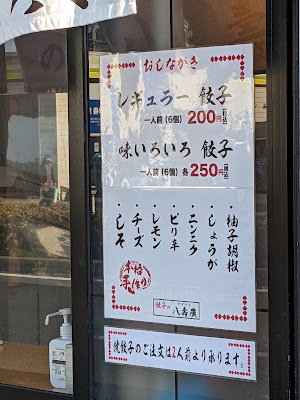 おしながき
レギュラー 餃子
一人前（6個）200円税込
味いろいろ 餃子
一人前（6個）各250円税込
・柚子胡椒
・しょうが
・ニンニク
・ピリ辛
・レモン
・チーズ
・しそ
本格
手作り
餃子の 八寿廣
焼餃子のご注文は2人前より承ります。